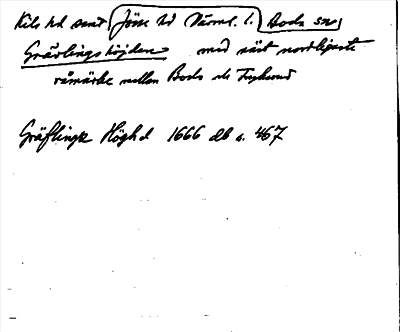 Kils hd samt Jösse hd Värml. l. Boda sn
Grävlingshöjden med näst nordligaste
råmärke mellan Boda och Frykerud
Gräflinge Högh d 1666 db s. 467